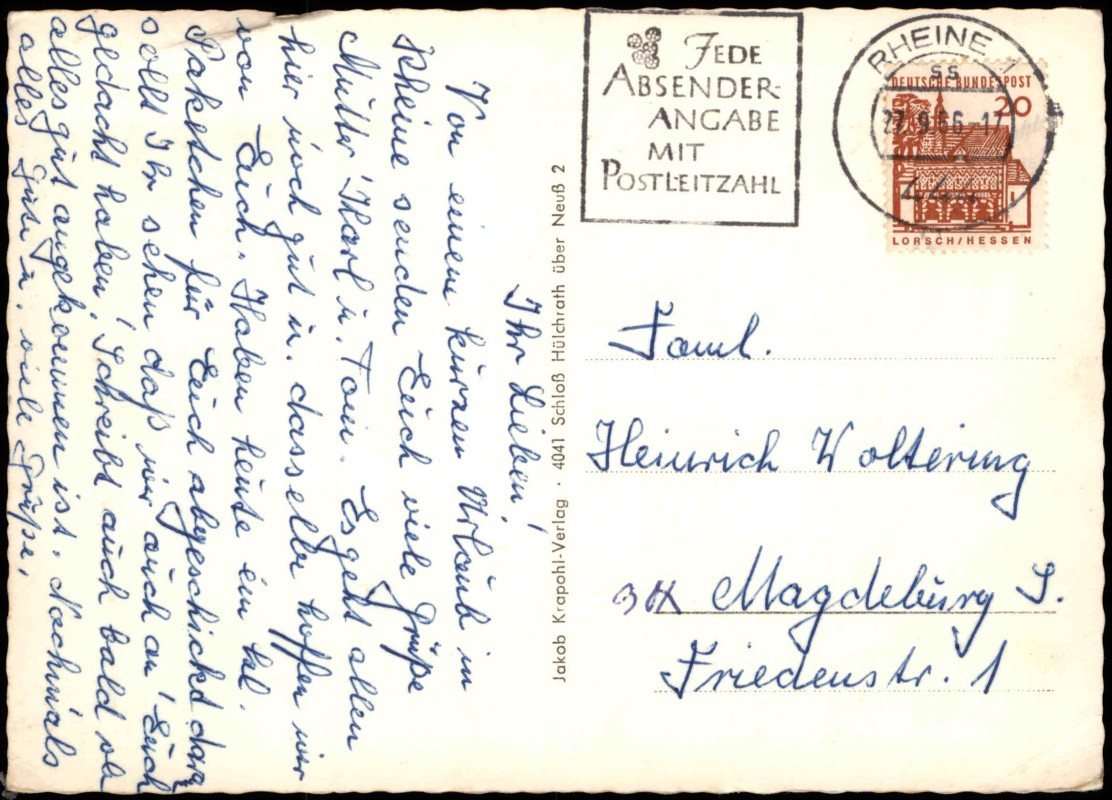 Ihr Lieben!
Von einem kurzen Urlaub in
Rheine senden Euch viele Grüße
Mutter Karl u. Toni. Es geht allen
hier noch gut u. dasselbe hoffen wir
von Euch. Haben heute ein kl.
Paketchen für Euch abgeschickt daran
sollt Ihr sehen daß wir auch an Euch
gedacht haben. Schreibt auch bald ob
alles gut angekommen ist. Nochmals
alles Gute u. viele Grüße.
Jakob Krapohl-Verlag · 4041 Schloß Hülchrath über Neuß 2
JEDE
ABSENDER-
ANGABE
MIT
POSTLEITZAHL
RHEINE 1
ss
27.9.66-17
DEUTSCHE BUNDESPOST
20
LORSCH/HESSEN
Faml.
Heinrich Woltering
Magdeburg S.
Friedenstr. 1